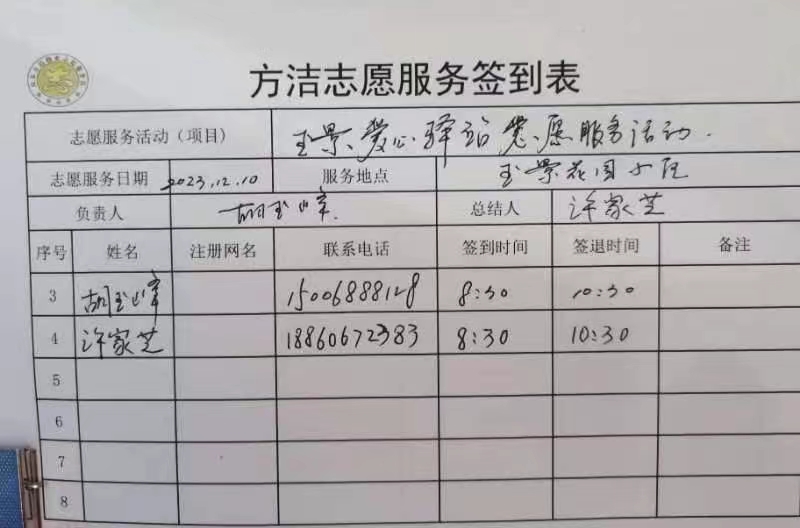 方洁志愿服务签到表
志愿服务活动（项目） 玉景爱心驿站志愿服务活动.
志愿服务日期 2023.12.10 服务地点 玉景花园小区
负责人 胡玉峰. 总结人 许家芝
序号 姓名 注册网名 联系电话 签到时间 签退时间 备注
3 胡玉峰 15006888128 8:30 10:30
4 许家芝 18860672383 8:30 10:30
5
6
7
8